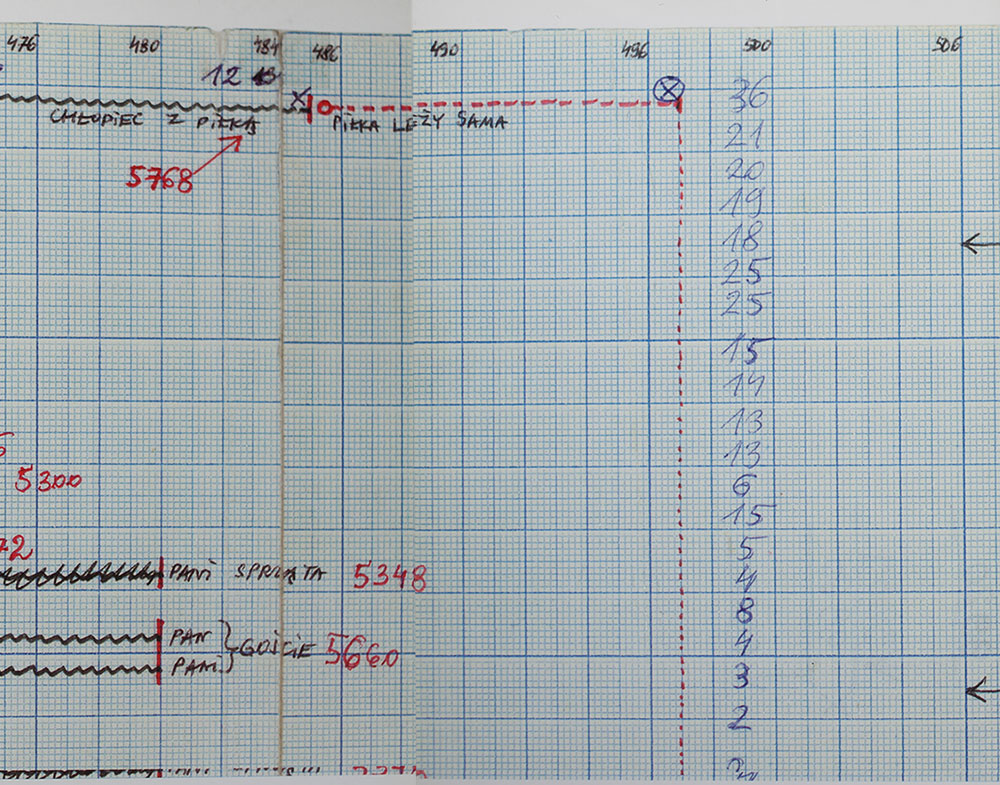 476 480 484 486 490 496 500 506
12
CHŁOPIEC Z PIŁKĄ
PIŁKA LEŻY SAMA
5768
36
21
20
19
18
25
25
15
14
13
13
6
15
5
4
8
4
3
2
5300
72
PANI SPRZĄTA 5348
PAN
PANI
GOŚCIE 5660